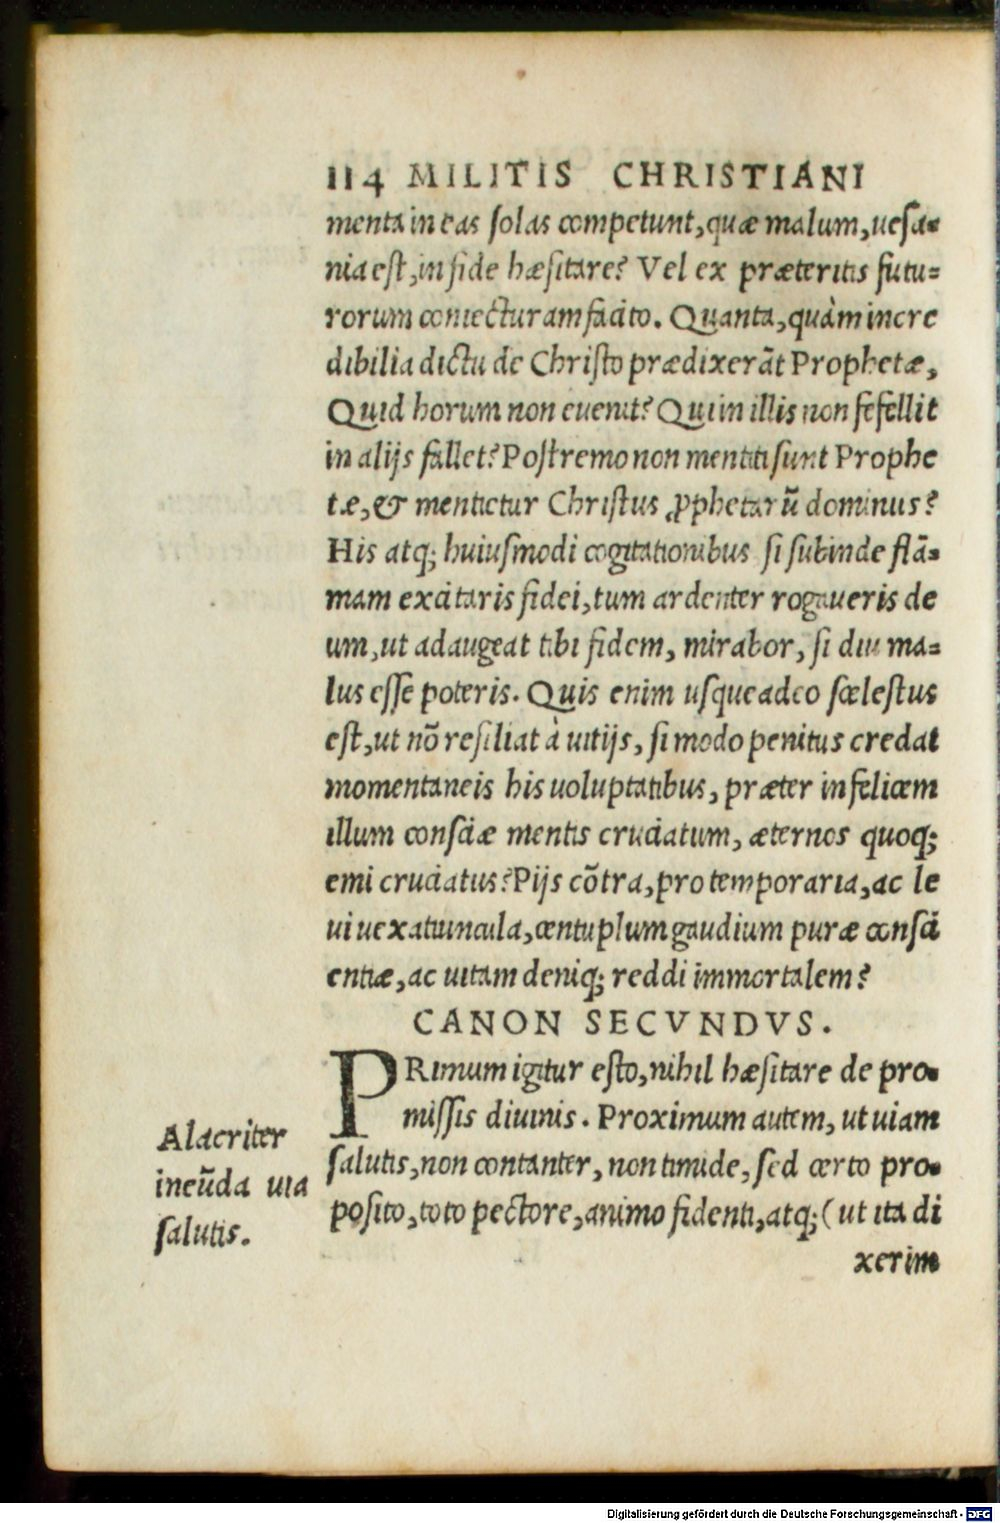 114 MILITIS CHRISTIANI
menta in eas solas competunt, quæ malum, uesa-
nia est, in fide hæsitare? Vel ex præteritis futu-
rorum coniecturam facito. Quanta, quàm incre
dibilia dictu de Christo prædixerãt Prophetæ,
Quid horum non euenit? Qui in illis non fefellit
in alijs fallet? Postremo non mentiti sunt Prophe
tæ, & mentietur Christus ꝓphetarũ dominus?
His atq; huiusmodi cogitationibus si subinde flã-
mam excitaris fidei, tum ardenter rogaueris de
um, ut adaugeat tibi fidem, mirabor, si diu ma-
lus esse poteris. Quis enim usqueadeo scelestus
est, ut nõ resiliat à uitijs, si modo penitus credat
momentaneis his uoluptatibus, præter infelicem
illum consciæ mentis cruciatum, æternos quoq;
emi cruciatus? Pijs cõtra, pro temporaria, ac le
ui uexatiuncula, centuplum gaudium puræ consci
entiæ, ac uitam deniq; reddi immortalem?
CANON SECVNDVS.
PRimum igitur esto, nihil hæsitare de pro-
missis diuinis. Proximum autem, ut uiam
salutis, non contanter, non timide, sed certo pro-
posito, toto pectore, animo fidenti, atq; (ut ita di
xerim
Alacriter
ineũda uia
salutis.
Digitalisierung gefördert durch die Deutsche Forschungsgemeinschaft - DFG